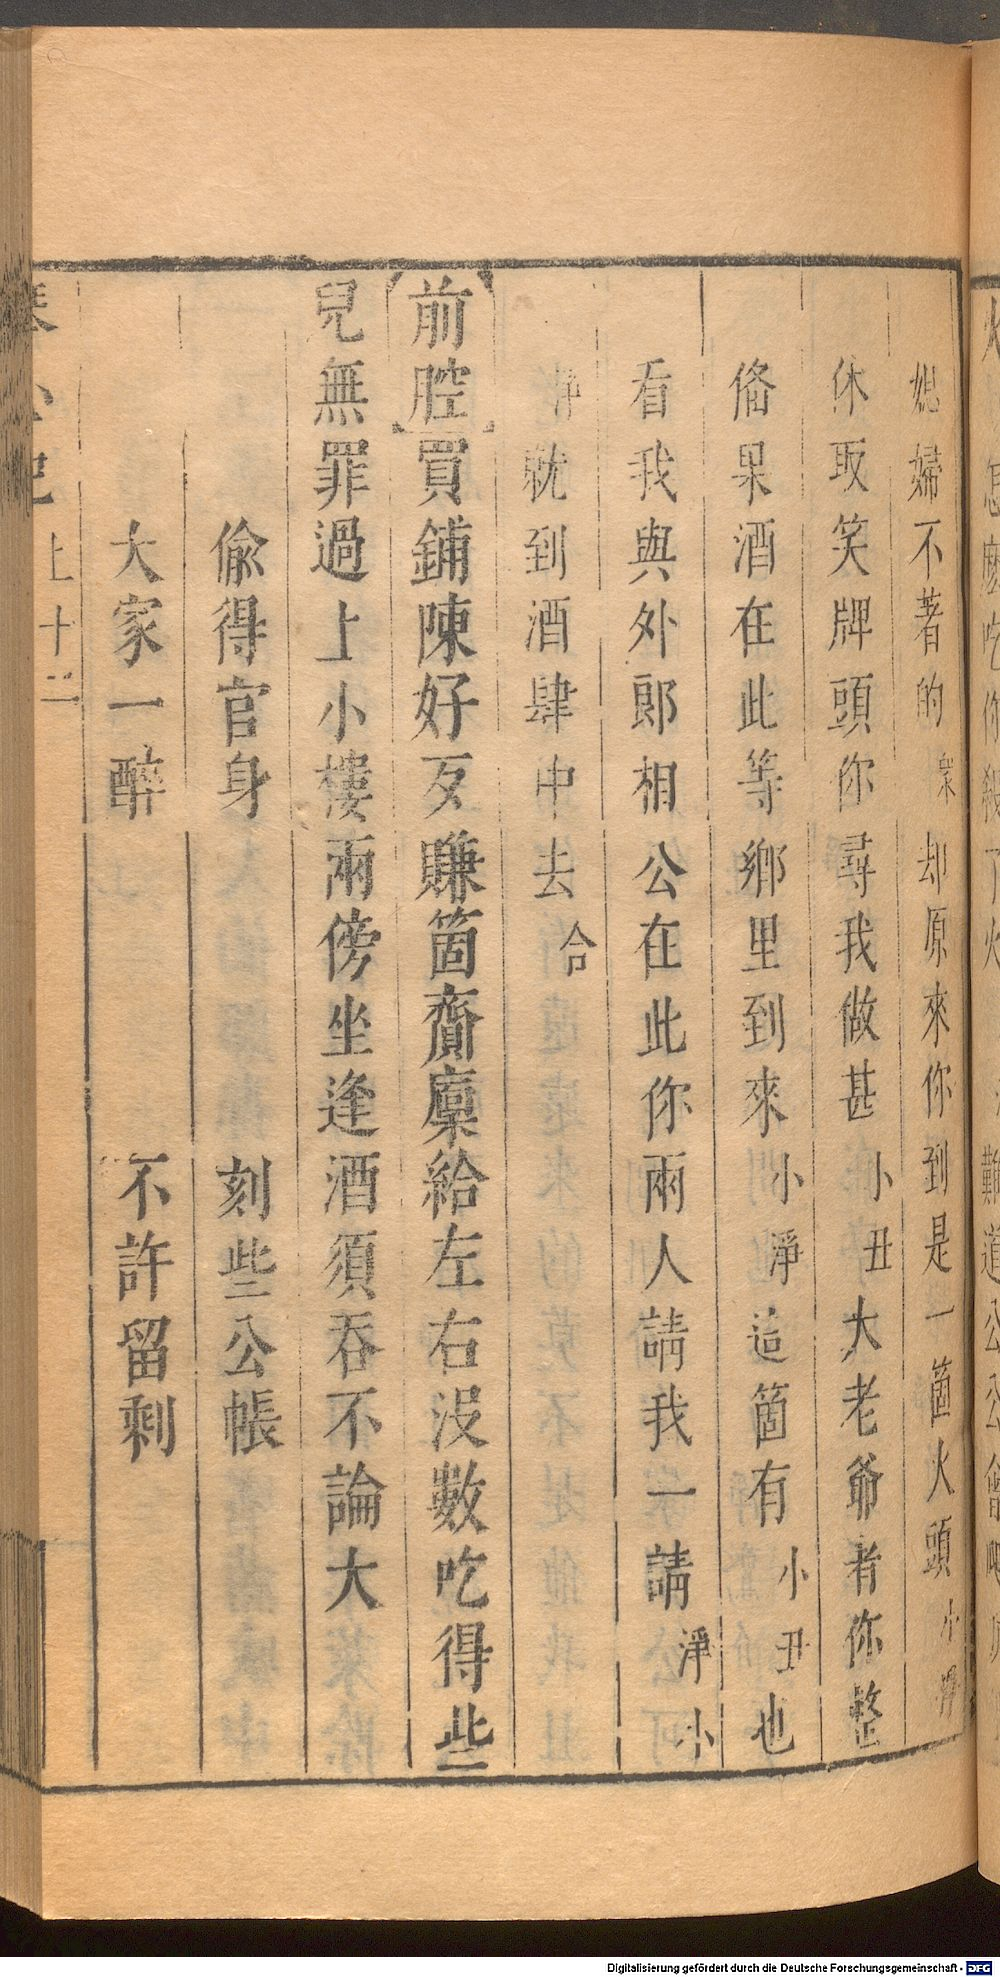 媳婦不著的衆却原來你到是一箇火頭小淨
休取笑牌頭你尋我做甚小丑大老爺着你整
俻果酒在此等鄉里到來小淨這箇有小丑也
看我與外郞相公在此你兩人請我一請淨小
淨就到酒肆中去合
前腔買鋪陳好歹賺箇齎廩給左右没數吃得些
兒無罪過上小樓兩傍坐逢酒須吞不論大
偸得官身 刻些公帳
大家一醉 不許留剩
上十二
Digitalisierung gefördert durch die Deutsche Forschungsgemeinschaft - DFG